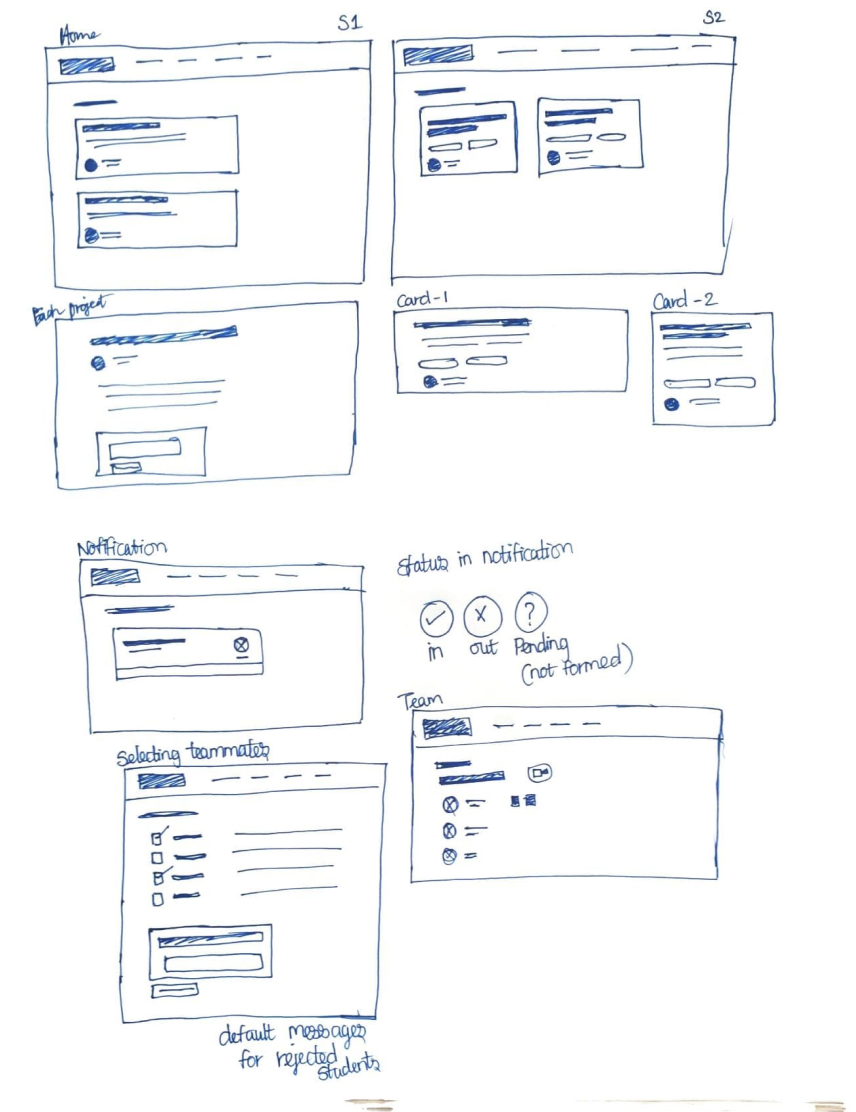 Home
S1
S2
Each project
Card-1
Card-2
Notification
Status in notification
in
out
Pending
(not formed)
Team
Selecting teammates
default messages
for rejected
students